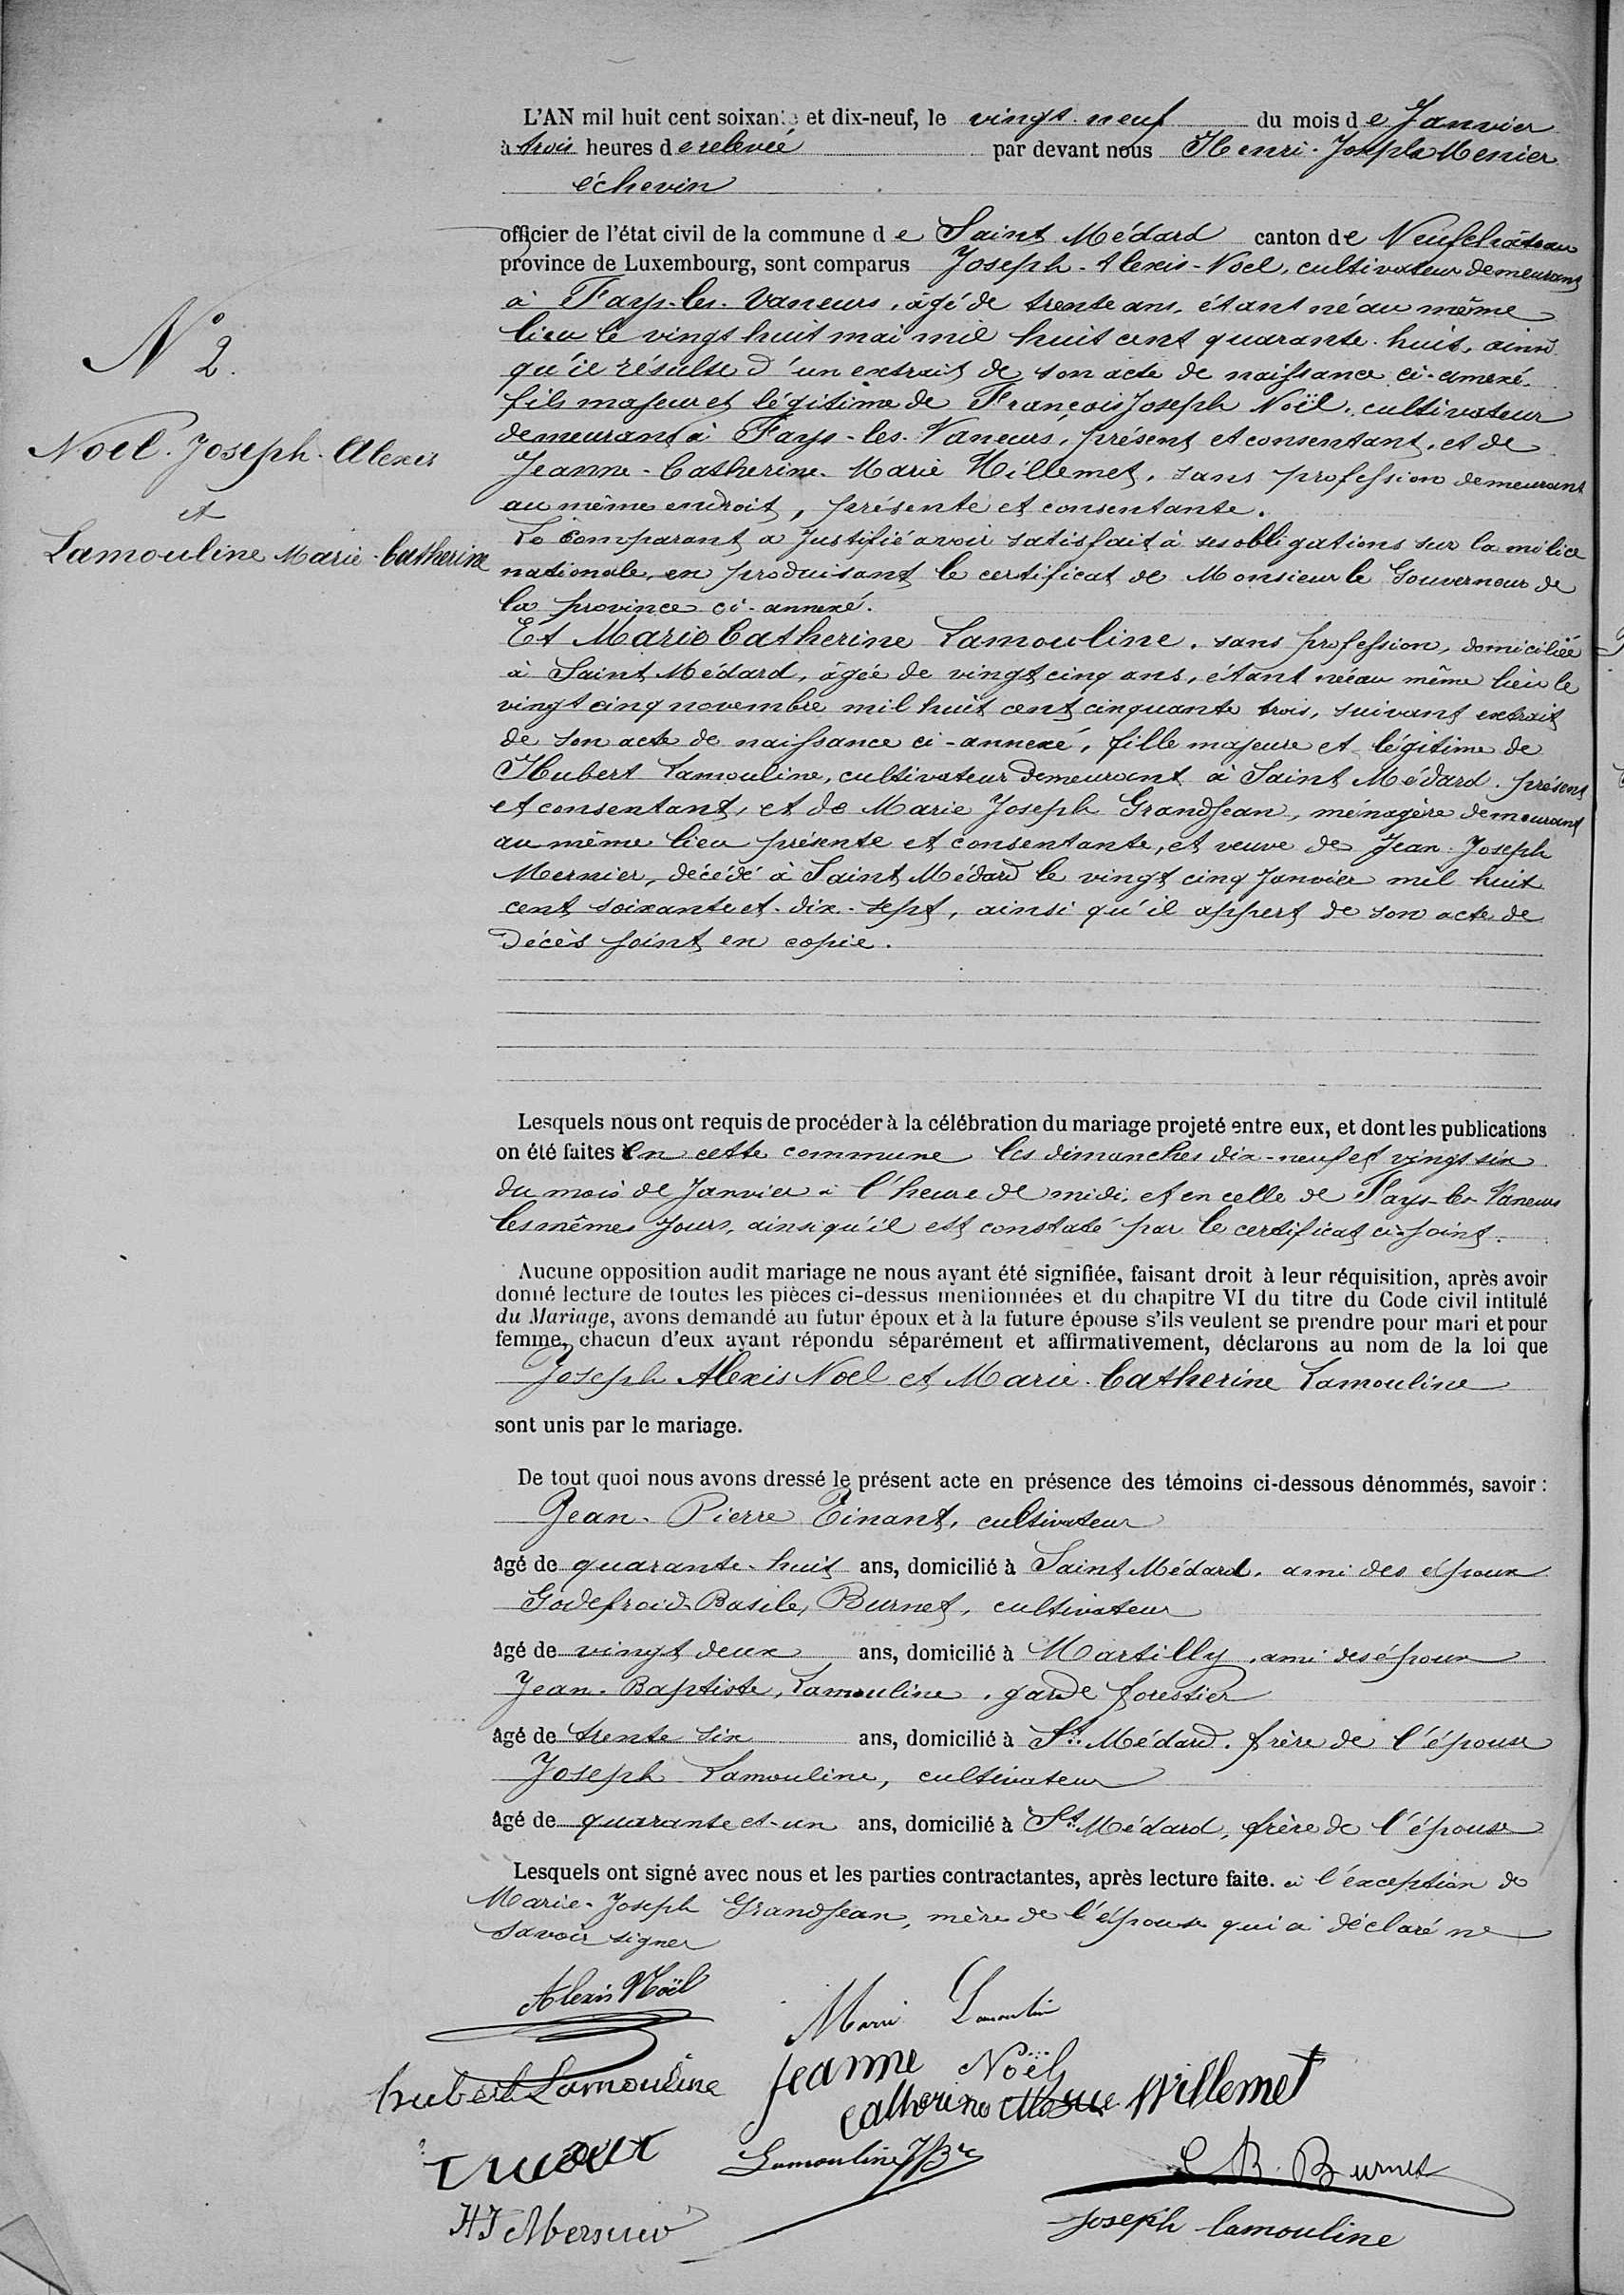 L'AN mil huit cent soixante et dix-neuf, le vingt-neuf du mois de Janvier
à trois heures de relevée par devant nous Henri-Joseph Mernier
échevin
officier de l'état civil de la commune de Saint Médard canton de Neufchâteau
province de Luxembourg, sont comparus Joseph-Alexis-Noel, cultivateur demeurant
à Fays-les-Vaneurs, âgé de trente ans, étant né au même
lieu le vingt huit mai mil huit cent quarante-huit, ainsi
qu'il résulte d'un extrait de son acte de naissance ci-annexé.
fils majeur et légitime de François Joseph Noël, cultivateur
demeurant à Fays-les-Vaneurs, présent et consentant, et de
Jeanne-Catherine-Marie Willemet, sans profession demeurant
au même endroit, présente et consentante.
Le comparant a justifié avoir satisfait à ses obligations sur la milice
nationale, en produisant le certificat de Monsieur le Gouverneur de
la province ci-annexé.
Et Marie Catherine Lamouline, sans profession, domiciliée
à Saint Médard, âgée de vingt cinq ans, étant née au même lieu le
vingt cinq novembre mil huit cent cinquante trois, suivant extrait
de son acte de naissance ci-annexé, fille majeure et légitime de
Hubert Lamouline, cultivateur demeurant à Saint Médard, présent
et consentant, et de Marie Joseph Grandjean, ménagère demeurant
au même lieu présente et consentante, et veuve de Jean-Joseph
Mernier, décédé à Saint Médard le vingt cinq Janvier mil huit
cent soixante et-dix-sept, ainsi qu'il appert de son acte de
décès joint en copie.
N° 2.
Noel-Joseph-Alexis
et
Lamouline Marie-Catherine
Lesquels nous ont requis de procéder à la célébration du mariage projeté entre eux, et dont les publications
on été faites en cette commune les dimanches dix-neuf et vingt six
du mois de Janvier à l'heure de midi, et en celle de Fays-les-Vaneurs
les mêmes jours, ainsi qu'il est constaté par le certificat ci-joint.
Aucune opposition audit mariage ne nous ayant été signifiée, faisant droit à leur réquisition, après avoir
donné lecture de toutes les pièces ci-dessus mentionnées et du chapitre VI du titre du Code civil intitulé
du Mariage, avons demandé au futur époux et à la future épouse s'ils veulent se prendre pour mari et pour
femme, chacun d'eux ayant répondu séparément et affirmativement, déclarons au nom de la loi que
Joseph Alexis Noel et Marie-Catherine Lamouline
sont unis par le mariage.
De tout quoi nous avons dressé le présent acte en présence des témoins ci-dessous dénommés, savoir :
Jean-Pierre Tinant, cultivateur
âgé de quarante-huit ans, domicilié à Saint Médard, ami des époux
Godefroid-Basile, Burnet, cultivateur
âgé de vingt deux ans, domicilié à Martilly, ami des époux
Jean-Baptiste, Lamouline, garde forestier
âgé de trente six ans, domicilié à St. Médard, frère de l'épouse
Joseph Lamouline, cultivateur
âgé de quarante et-un ans, domicilié à St. Médard, frère de l'épouse
Lesquels ont signé avec nous et les parties contractantes, après lecture faite. à l'exception de
Marie-Joseph Grandjean, mère de l'épouse qui a déclaré ne
savoir signer
Alexis Noël
Marie Lamoulin
Jeanne Noël
hubert Lamouline
Catherine Willemet
Lamouline JBte
B. Burnet
HJ Mernier
Joseph lamouline